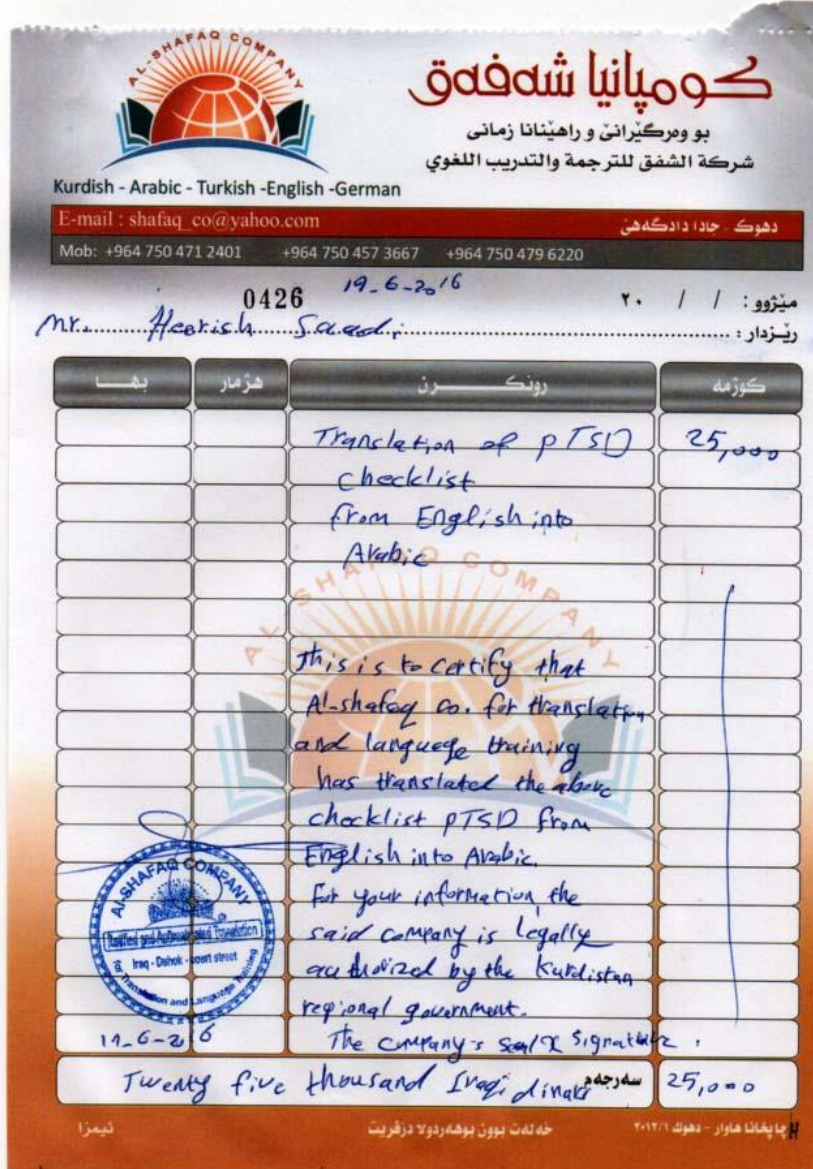 AL-SHAFAQ COMPANY
كـومپانيا شەفەق
بو وەرگێرانێ و راهێنانا زمانى
شركة الشفق للترجمة والتدريب اللغوي
Kurdish - Arabic - Turkish -English -German
E-mail : shafaq_co@yahoo.com
دهوك - جادا دادگەهێ
Mob: +964 750 471 2401 +964 750 457 3667 +964 750 479 6220
19-6-2016
0426
مێژوو : / / ٢٠
رێـزدار :
Mr. Heerish Saadi
كوژمە رونكـــرن هژمار بهـــا
Translation of PTSD 25,000
checklist
from English into
Arabic
AL-SHAFAQ COMPANY
This is to certify that
Al-shafaq co. for translation
and language training
has translated the above
checklist PTSD from
English into Arabic.
For your information, the
said company is legally
authorized by the Kurdistan
regional government.
The company's seal & signature.
Al-SHAFAQ COMPANY
Iraq - Dohok - court street
for Translation and Language Training
19-6-2016
Twenty five thousand Iraqi dinars سەرجەم 25,000
چاپخانا هاوار - دهوك ٢٠١٢/١
خەلەت بوون بوهەردولا دزڤريت
ئيمزا